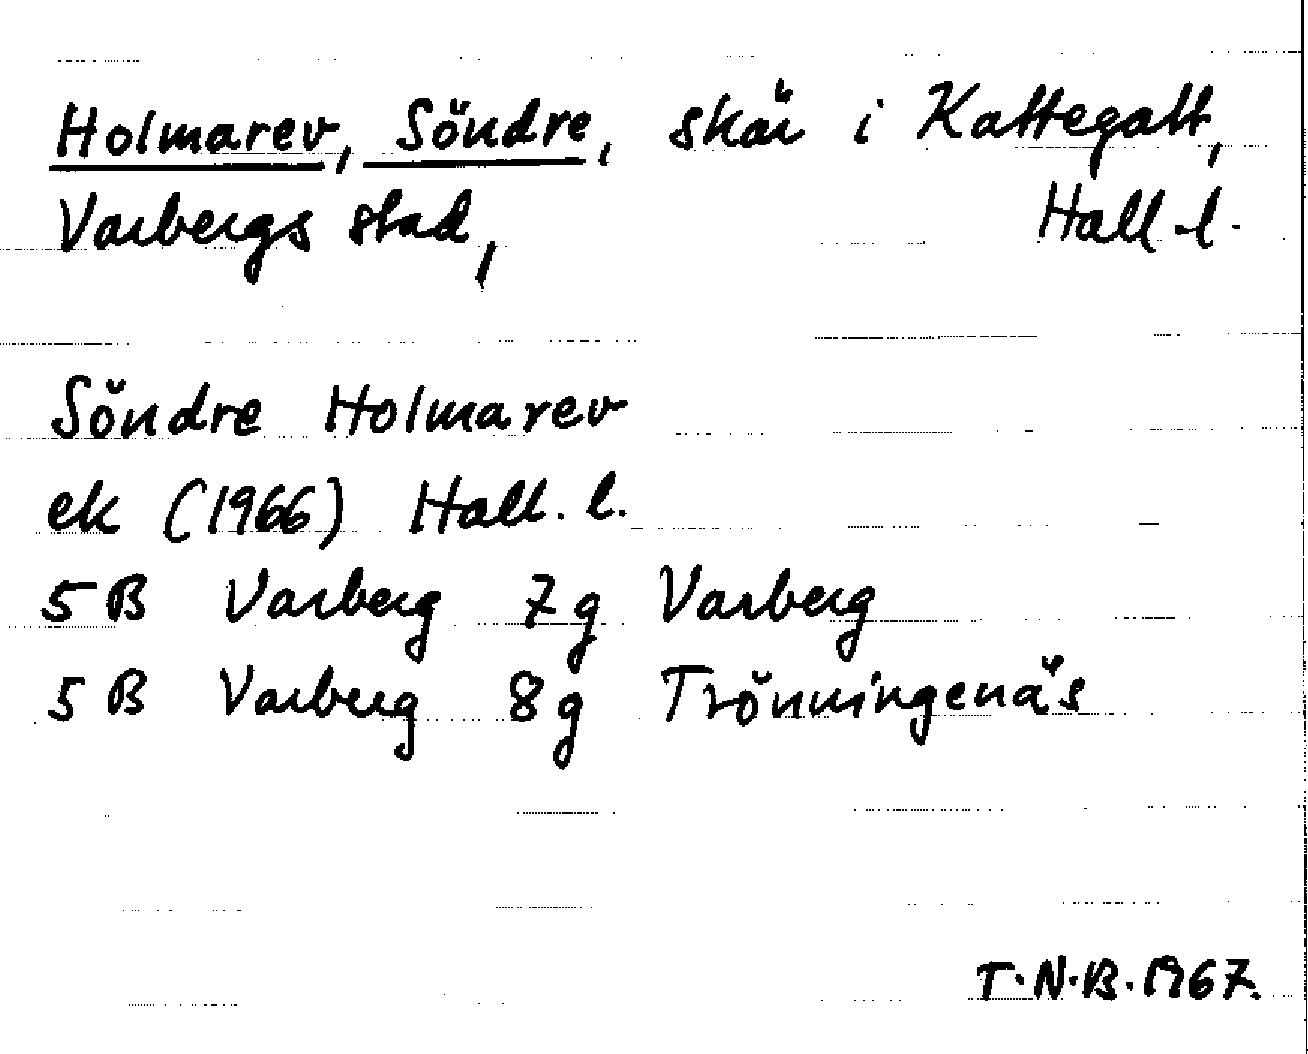 Holmarev, Söndre, skär i Kattegatt,
Varbergs stad, Hall. l.
Söndre Holmarev
ek (1966) Hall. l.
5 B Varberg 7g Varberg
5 B Varberg 8g Trönningenäs
T.N.B. 1967.